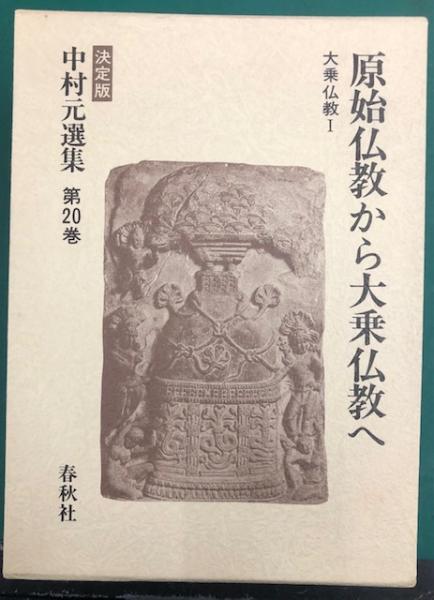 原始仏教から大乗仏教へ
大乗仏教Ⅰ
決定版
中村元選集 第20巻
春秋社